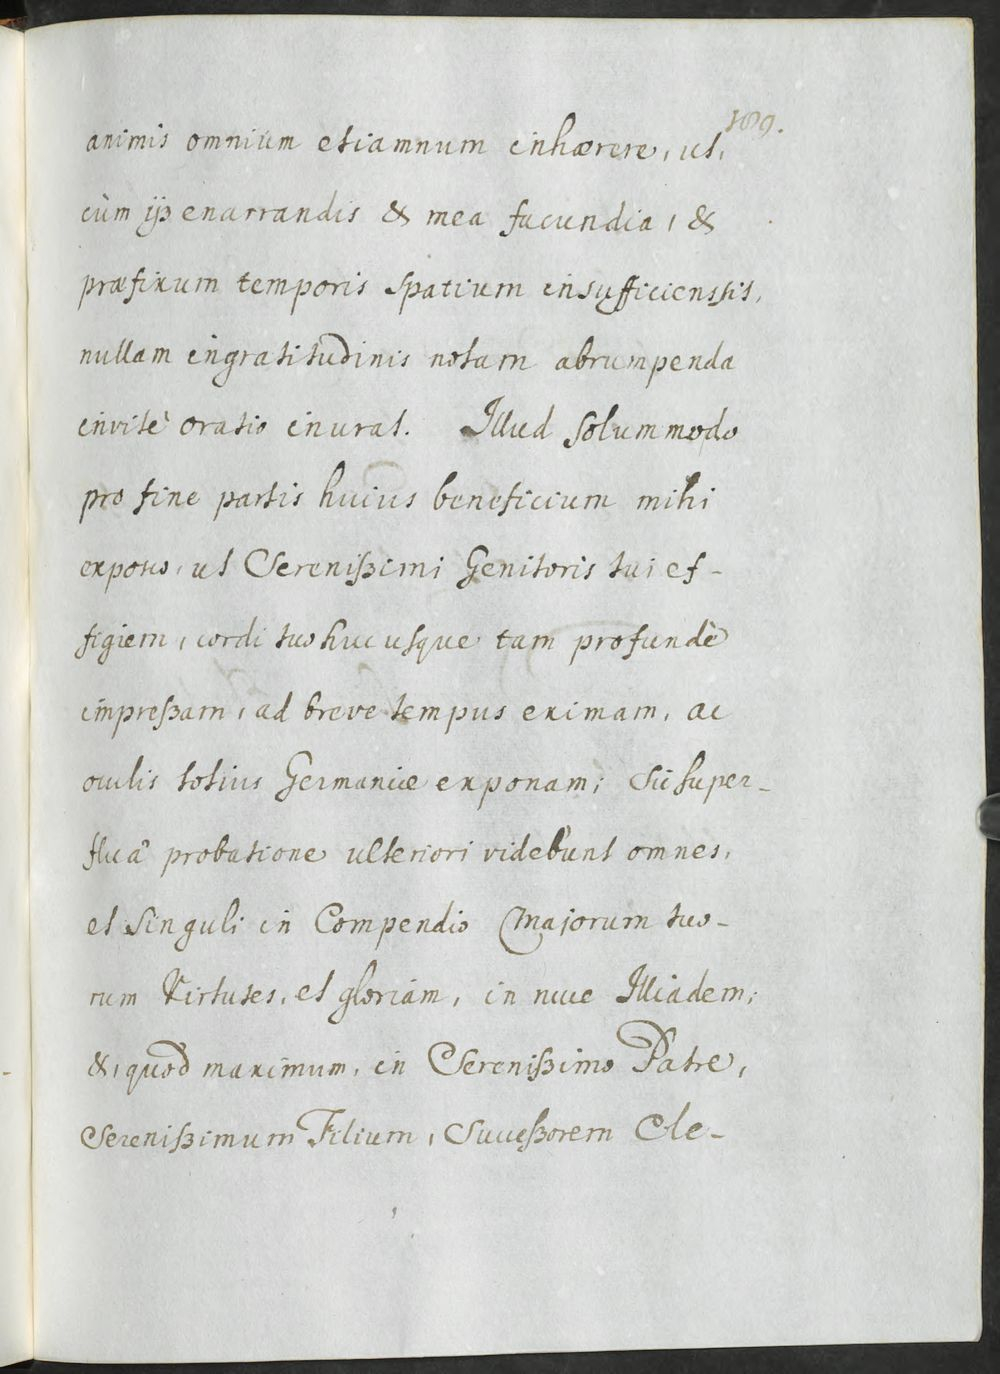 189.
animis omnium etiamnum inhærere, ut,
cùm ijs enarrandis & mea facundia, &
præfixum temporis spatium insufficiens sit,
nullam ingratitudinis notam abrumpenda
invitè oratio inurat. Illud solummodo
pro fine partis huius beneficium mihi
exposco, ut Serenißimi Genitoris tui ef-
figiem, cordi tuo huc usque tam profundè
impreßam, ad breve tempus eximam, ac
oculis totius Germaniæ exponam; Sic super-
fluâ probatione ulteriori videbunt omnes,
et Singuli in Compendio Majorum tuo-
rum Virtutes, et gloriam, in nuce Illiadem;
&, quod maximum, in Serenißimo Patre,
Serenißimum Filium, Succeßorem Cle-